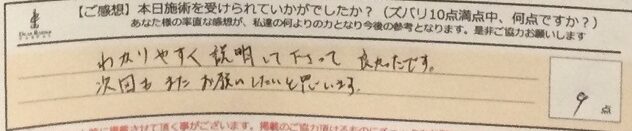 【ご感想】本日施術を受けられていかがでしたか？（ズバリ10点満点中、何点ですか？）
あなた様の率直な感想が、私達の何よりの力となり今後の参考となります。是非ご協力お願いします
わかりやすく説明して下さって良かったです。
次回もまたお願いしたいと思います。
9点
に掲載させて頂く事がございます。掲載のご協力頂ける